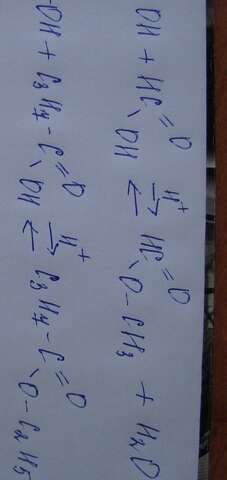 OH + HC=O\OH ⇄ H⁺ HC=O\O-CH₃ + H₂O
-OH + C₃H₇-C=O\OH ⇄ H⁺ C₃H₇-C=O\O-C₂H₅